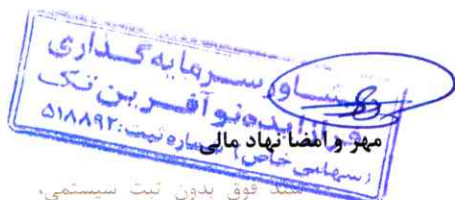 مشاور سرمایه‌گذاری
فرا ایده نو آفرین تک
(سهامی خاص) شماره ثبت: ۵۱۸۸۹۲
مهر و امضا نهاد مالی
سند فوق بدون ثبت سیستمی،